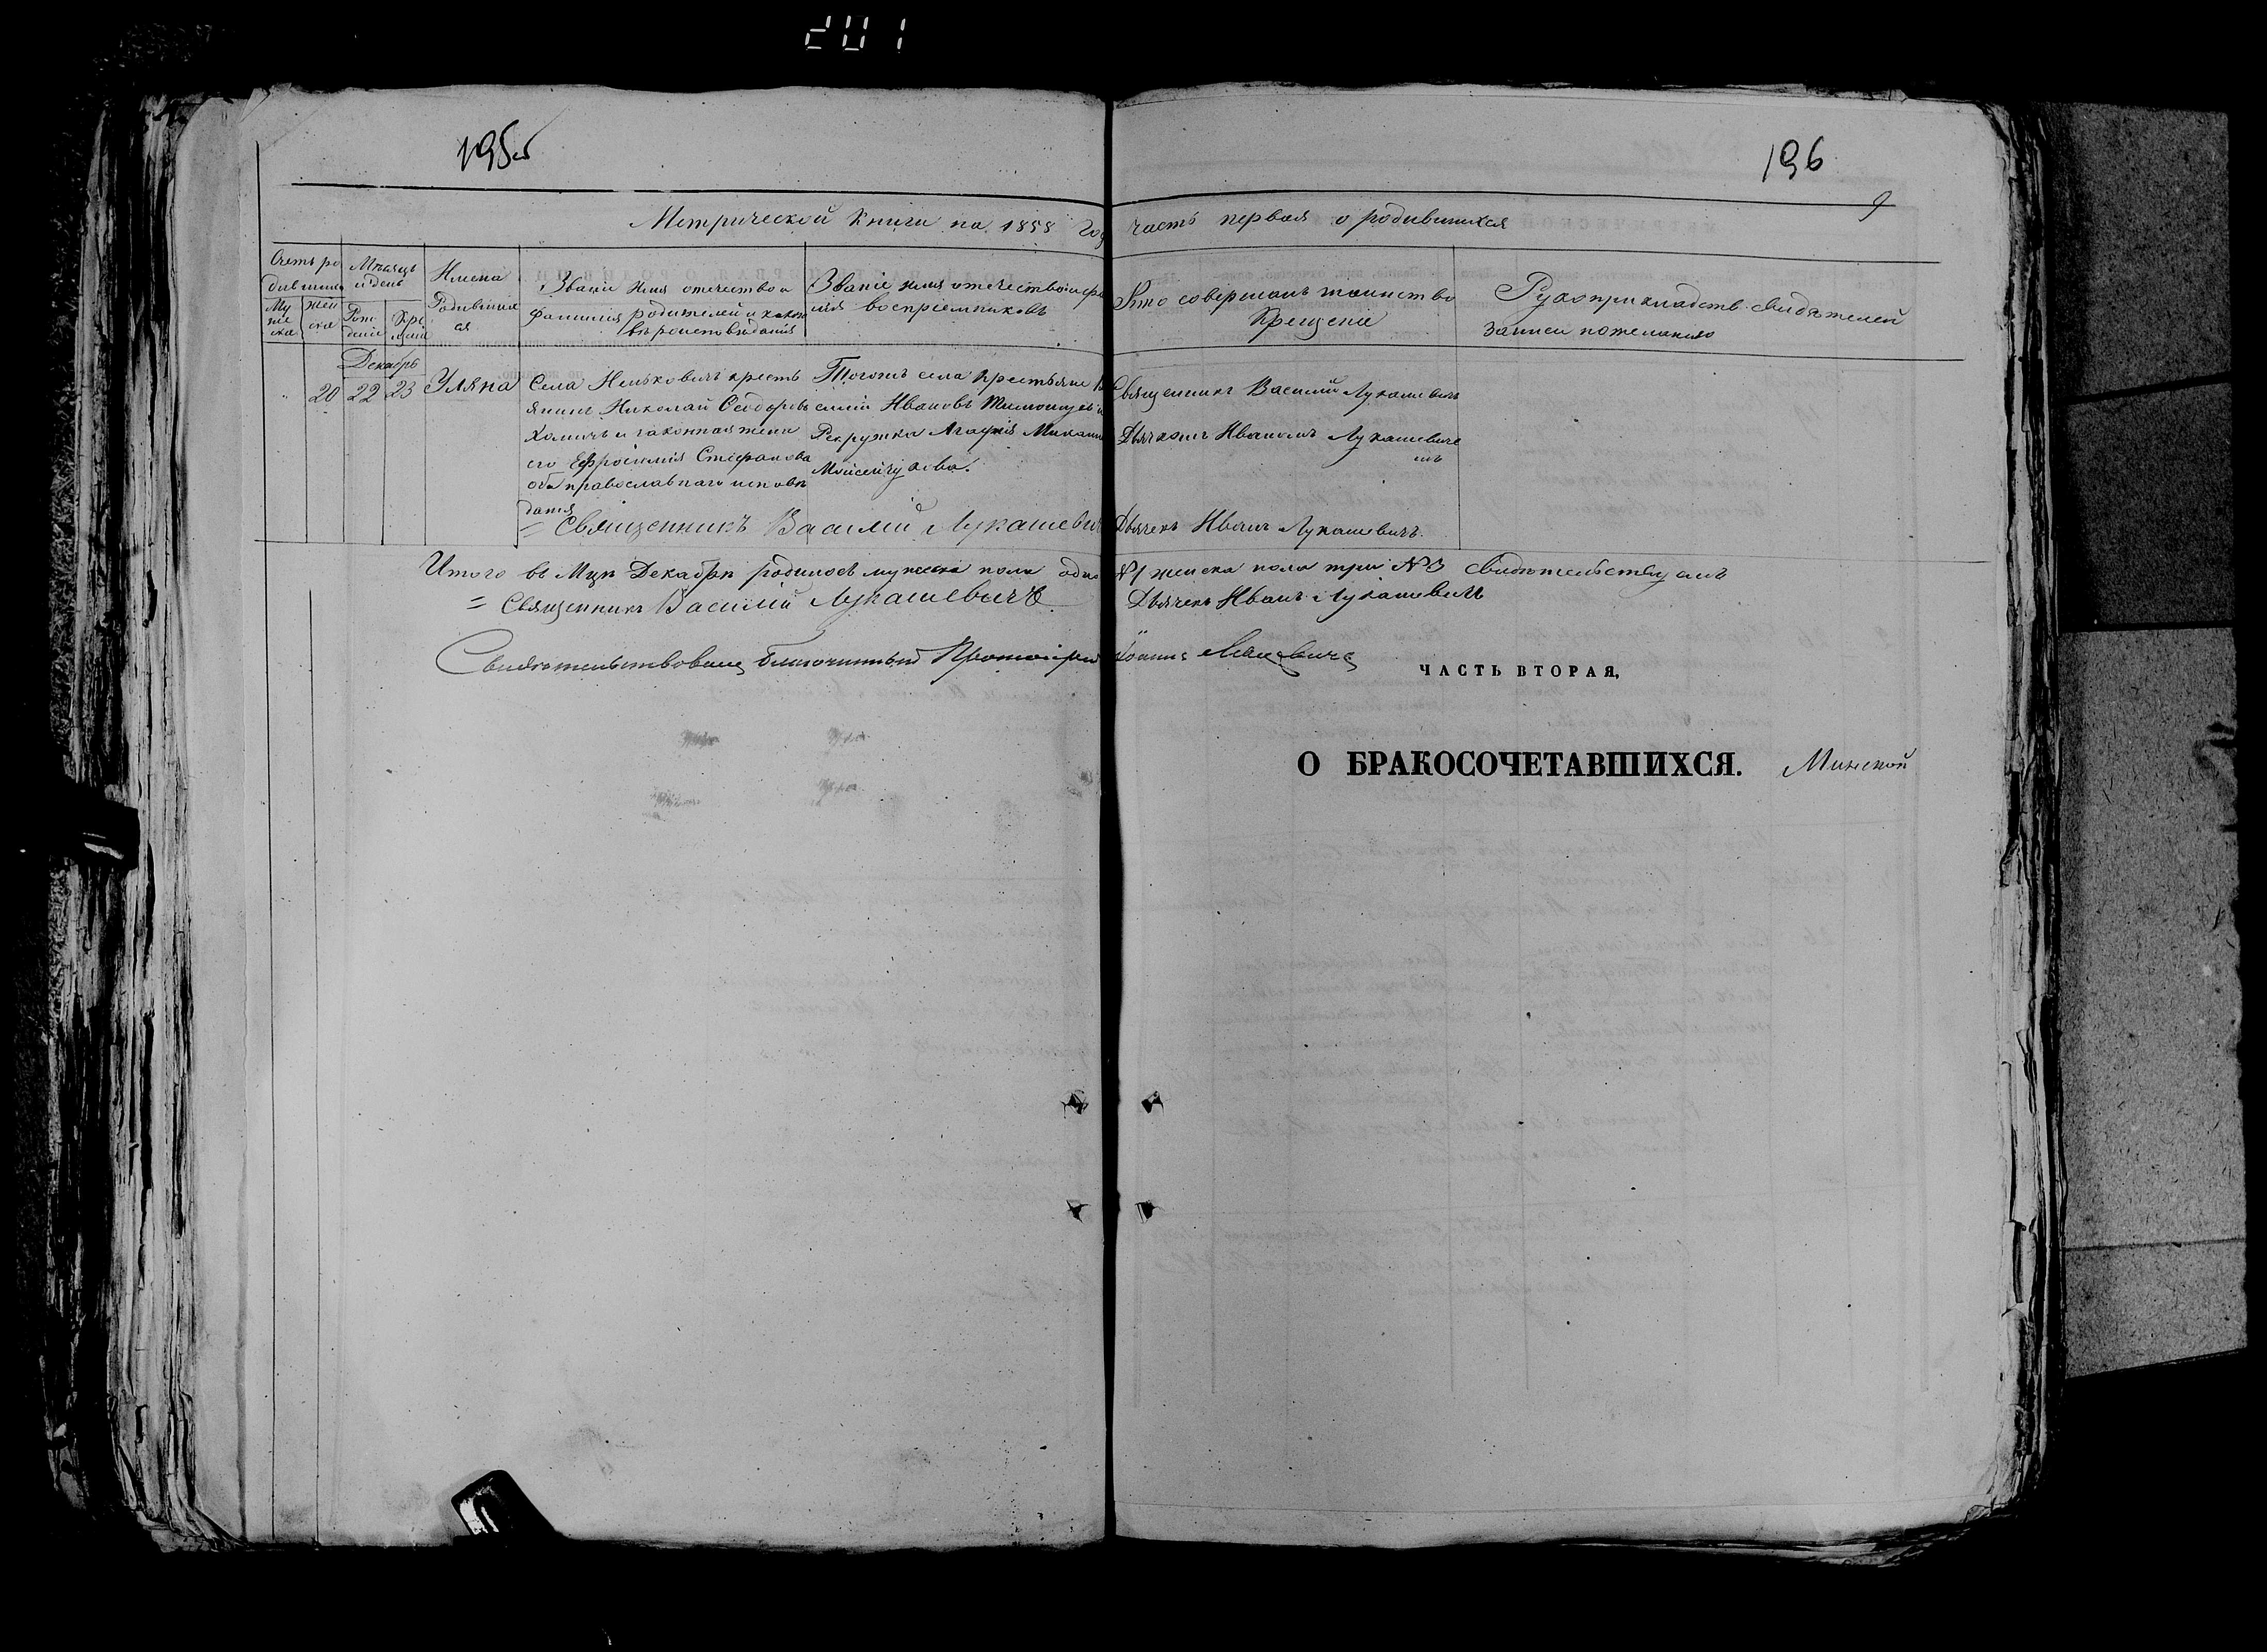 201
195об
196
9
Метрической Книги на 1858 год часть первая о родившихся
Счетъ ро
дившихся
Му
же
ска
Жен
ска
Месяцъ
и день
Рож
дение
Кре
щения
Имена
Родивших
ся
Звание Имя отечество и
фамилия родителей и какого
вероисповедания
Звание имя отечество и фами
лия восприемниковъ
Кто совершалъ таинство
Крещения
Рукоприкладств. свидетелей
записи по желанию
Декабрь
20 22 23 Уляна
Села Неньковичъ кресть
янинъ Николай Ѳеодоровъ
Хомичъ и законная жена
его Ефросиния Стефанова
оба православнаго испове
дания
Тогожъ села крестьяне Ва
силий Ивановъ и
Рекрутка Агафия
Священникъ Василий Лукашевичъ
Дьячкомъ Иваномъ Лукашевиче
мъ
= Священникъ Василий Лукашевичъ Дьячекъ Иванъ Лукашевичъ.
Итого въ Мцѣ Декабрѣ родилось мужеска пола одно №1 женска пола три №3 свидетельствуемъ
= Священникъ Василий Лукашевичъ. Дьячекъ Иванъ Лукашевичъ
Свидетельствовалъ Благочинный Протоиерей Иоаннъ
ЧАСТЬ ВТОРАЯ,
О БРАКОСОЧЕТАВШИХСЯ. Минской